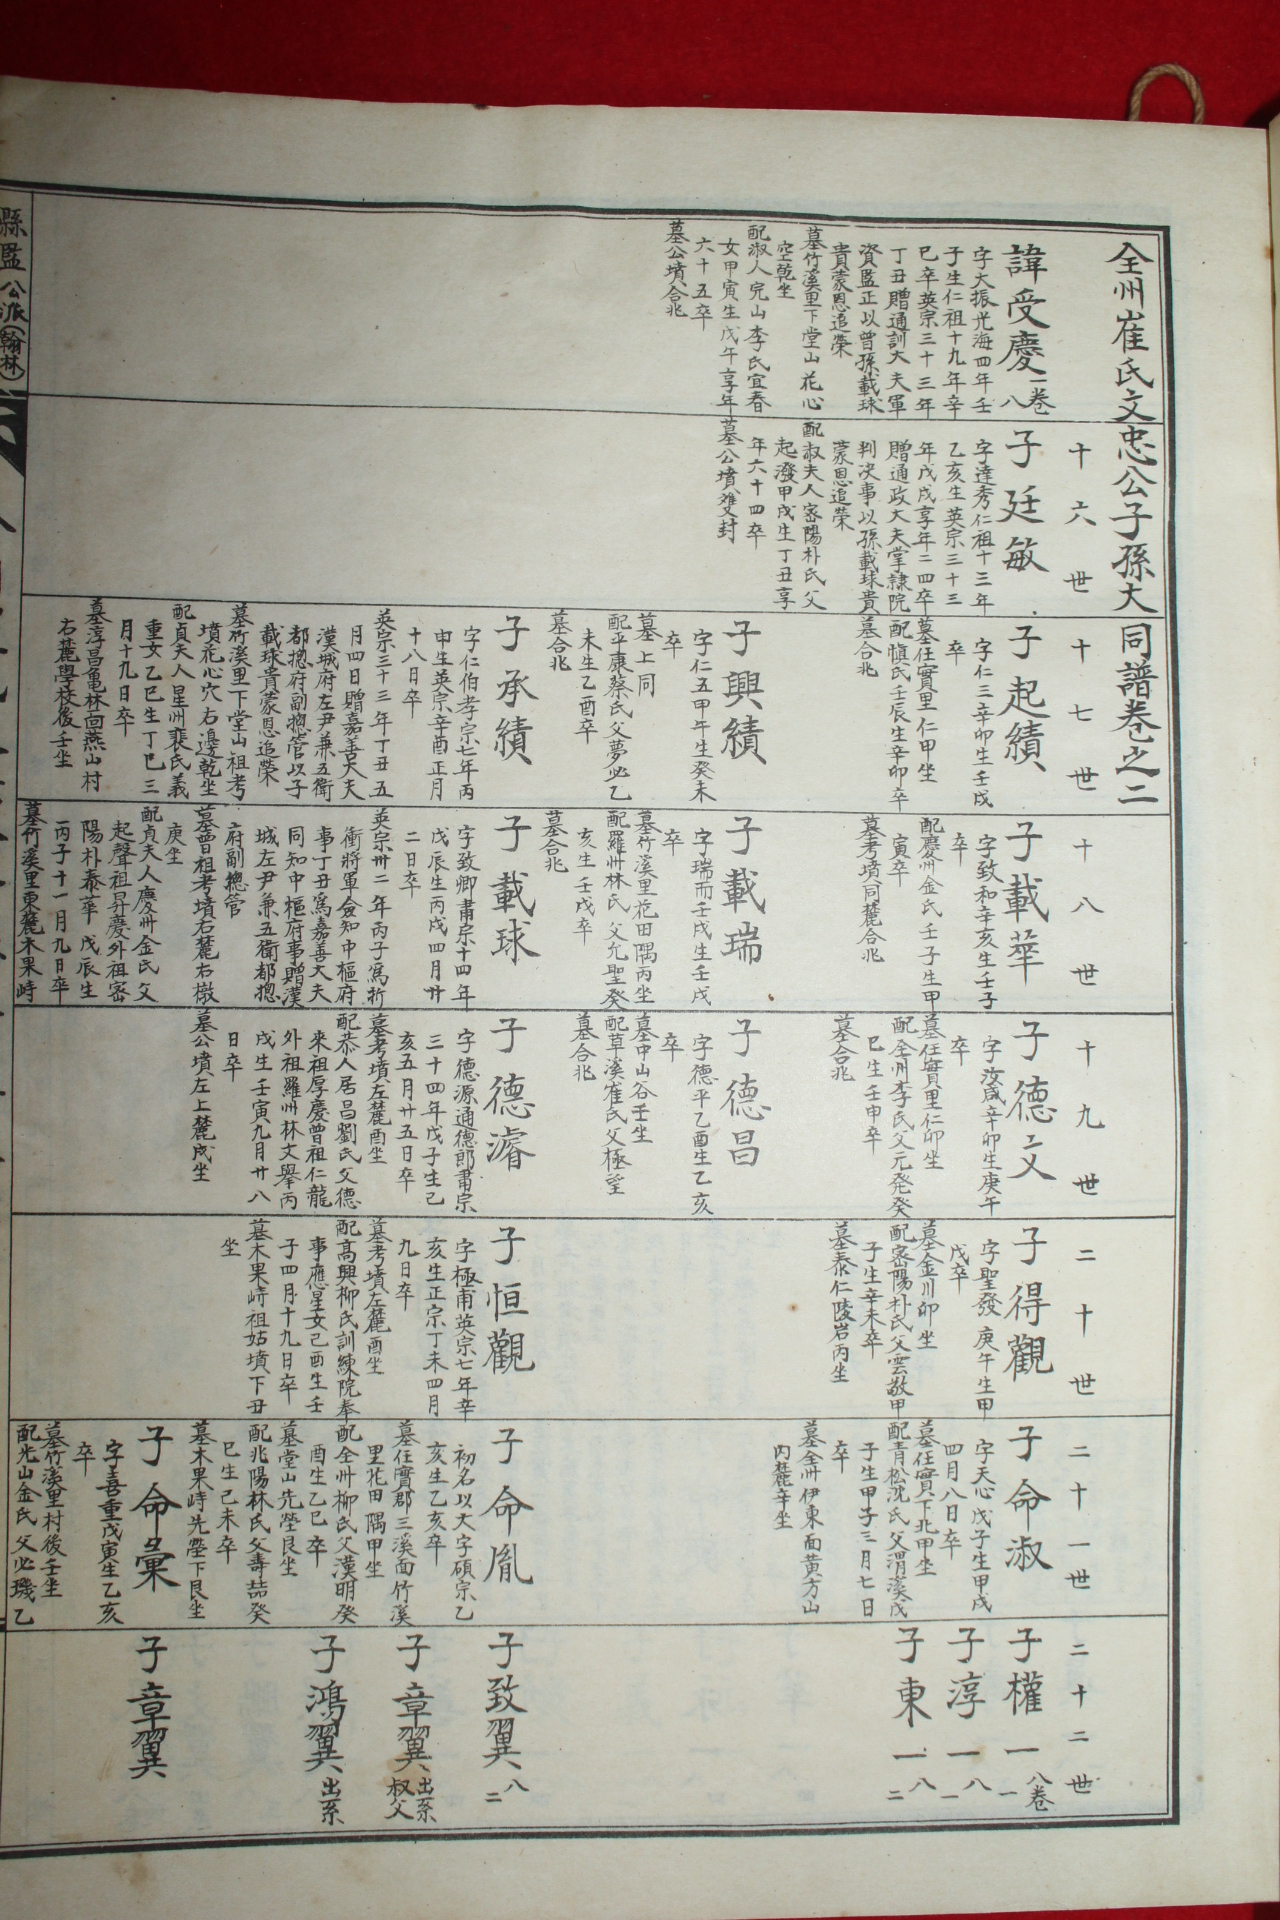 全州崔氏文忠公子孫大同譜卷之二
諱受慶
一卷
八
字大振光海四年壬
子生仁祖十九年辛
巳卒英宗三十三年
丁丑贈通訓大夫軍
資監正以曾孫載球
貴蒙恩追榮
墓竹溪里下堂山花心
空乾坐
配淑人完山李氏宜春
女甲寅生戊午享年
六十五卒
墓公墳合兆
十六世
子廷敏
字達秀仁祖十三年
乙亥生英宗三十三
年戊戌享年二四卒
贈通政大夫掌隸院
判決事以孫載球貴
蒙恩追榮
配淑夫人密陽朴氏父
起潑甲戌生丁丑享
年六十四卒
墓公墳雙封
十七世
子起績
字仁三辛卯生壬戌
卒
墓任實里仁甲坐
配愼氏壬辰生辛卯卒
墓合兆
子興績
字仁五甲午生癸未
卒
墓上同
配平康蔡氏父夢必乙
未生乙酉卒
墓合兆
子承績
字仁伯孝宗七年丙
申生英宗辛酉正月
十八日卒
英宗三十三年丁丑五
月四日贈嘉善大夫
漢城府左尹兼五衛
都摠府副摠管以子
載球貴蒙恩追榮
墓竹溪里下堂山祖考
墳花心穴右邊乾坐
配貞夫人星州裵氏義
重女乙巳生丁巳三
月十九日卒
墓淳昌龜林向燕山村
右麓學校後壬坐
十八世
子載華
字致和辛亥生壬子
卒
配慶州金氏壬子生甲
寅卒
墓考墳同麓合兆
子載瑞
字瑞而壬戌生壬戌
卒
墓竹溪里花田隅丙坐
配羅州林氏父允聖癸
亥生壬戌卒
墓合兆
子載球
字致卿肅宗十四年
戊辰生丙戌四月廿
二日卒
英宗卅二年丙子爲折
衝將軍僉知中樞府
事丁丑爲嘉善大夫
同知中樞府事贈漢
城左尹兼五衛都摠
府副摠管
墓曾祖考墳右麓右
庚坐
配貞夫人慶州金氏父
起聲祖昇慶外祖密
陽朴泰華戊辰生
丙子十一月九日卒
墓竹溪里東麓木果峙
十九世
子德文
字汝咸辛卯生庚午
卒
墓任實里仁卯坐
配全州李氏父元發癸
巳生壬申卒
墓合兆
子德昌
字德平乙酉生乙亥
卒
墓中山谷壬坐
配草溪崔氏父極至
墓合兆
子德濬
字德源通德郎肅宗
三十四年戊子生己
亥五月廿五日卒
墓考墳左麓酉坐
配恭人居昌劉氏父德
來祖厚慶曾祖仁龍
外祖羅州林文擧丙
戌生壬寅九月廿八
日卒
墓公墳左上麓戌坐
二十世
子得觀
字聖發庚午生甲
戌卒
墓金川卯坐
配密陽朴氏父雲敬甲
子生辛未卒
墓泰仁陵岩丙坐
子恒觀
字極甫英宗七年辛
亥生正宗丁未四月
九日卒
墓考墳左麓酉坐
配高興柳氏訓練院奉
事應星女己酉生壬
子四月十九日卒
墓木果峙祖妣墳下丑
坐
二十一世
子命淑
字天心戊子生甲戌
四月八日卒
墓任實下北甲坐
配青松沈氏父渭漢戊
子生甲子三月七日
卒
墓全州伊東面黃方山
內麓辛坐
子命胤
初名以大字碩宗乙
亥生乙亥卒
墓任實郡三溪面竹溪
里花田隅甲坐
配全州柳氏父漢明癸
酉生乙巳卒
墓堂山先塋艮坐
配兆陽林氏父壽喆癸
巳生己未卒
墓木果峙先塋下艮坐
子命彙
字喜重戊寅生乙亥
卒
墓竹溪里村後壬坐
配光山金氏父必璣乙
二十二世
子權一
八卷
一
子淳一
八
一
子東一
八
二
子致翼
八
二
子章翼
出系
叔父
子鴻翼
出系
子章翼
縣監公派(翰林)